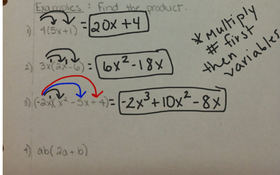 Examples: Find the product.
1) 4(5x+1) = 20x+4
2) 3x(2x-6) = 6x²-18x
3) (-2x)(x²-5x+4) = -2x³+10x²-8x
4) ab(2a+b)
* Multiply
# first
then
variables